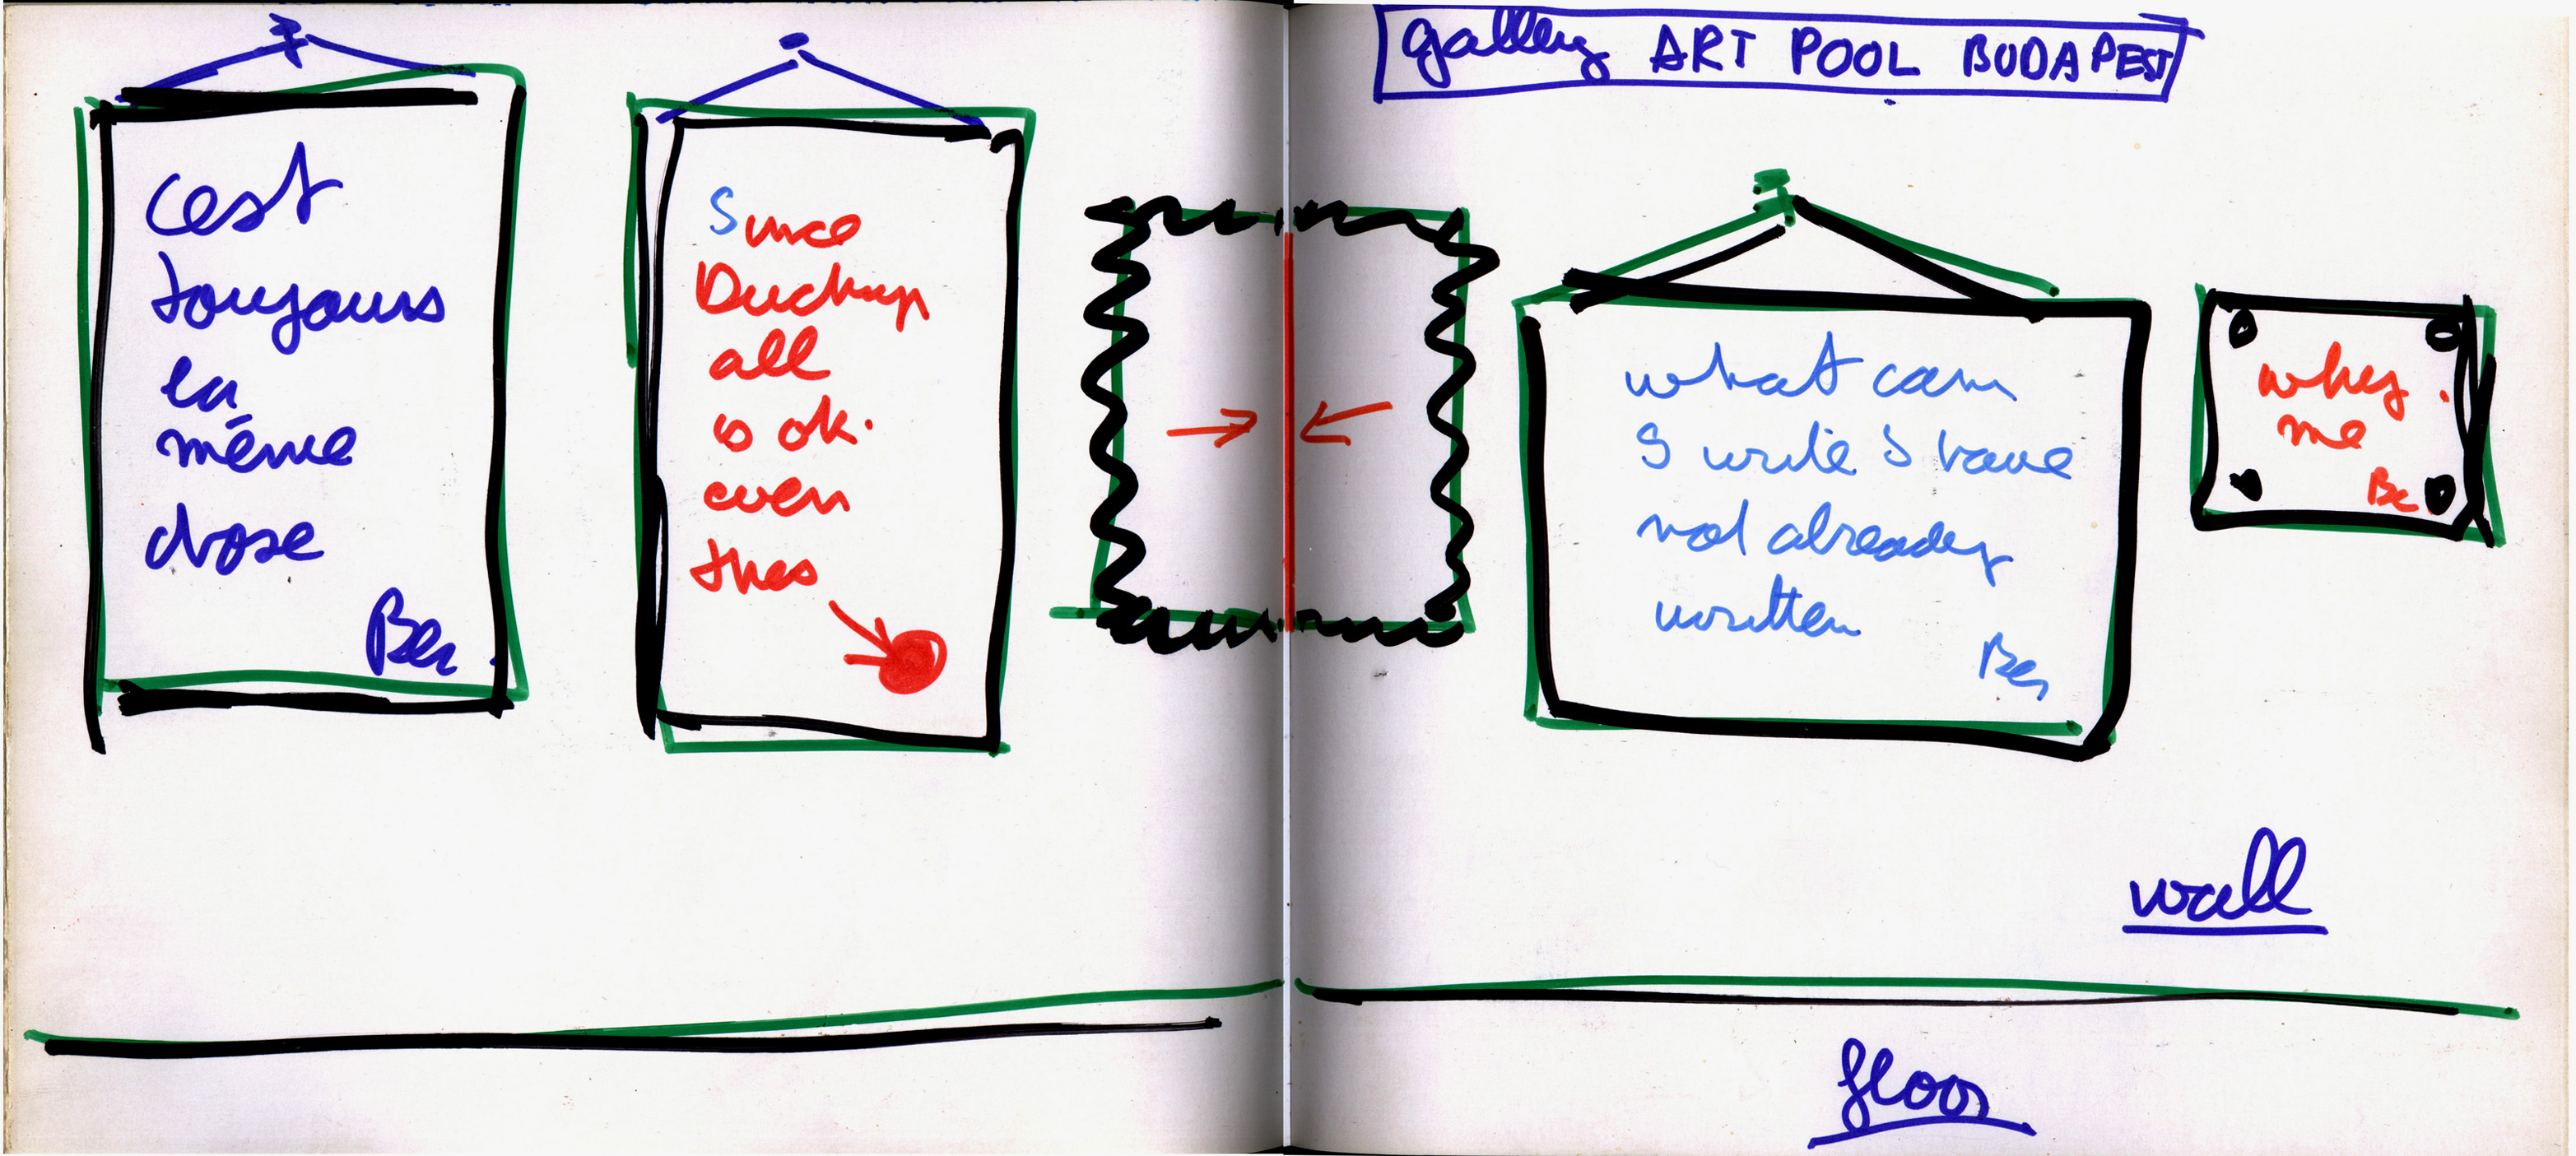 gallery ART POOL BUDAPEST
cest
toujours
la
même
chose
Ben
Since
Duchamp
all
is ok.
even
this
what can
I write I have
not already
written
Ben
why
me
Be
wall
floor